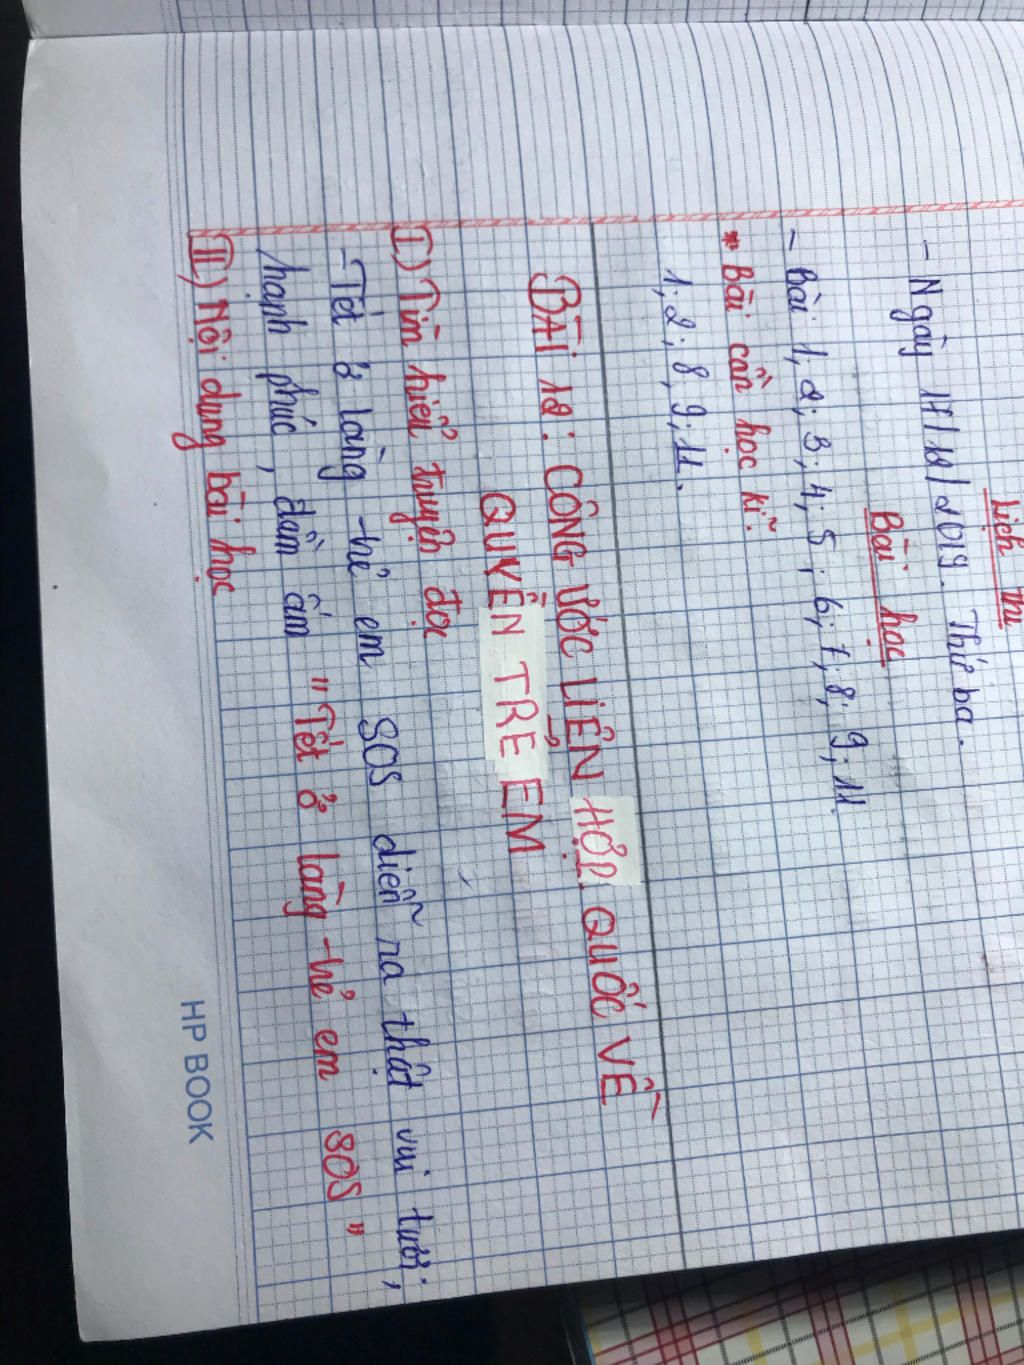 Lịch thi
- Ngày 17/12/2019. Thứ ba.
Bài học
- Bài 1; 2; 3; 4; 5; 6; 7; 8; 9; 11
* Bài cần học kĩ:
1; 2; 8; 9; 11.
BÀI 12: CÔNG ƯỚC LIÊN HỢP QUỐC VỀ
QUYỀN TRẺ EM
I) Tìm hiểu truyện đọc
- Tết ở làng trẻ em SOS diễn ra thật vui tươi,
hạnh phúc, đầm ấm " Tết ở làng trẻ em SOS "
II) Nội dung bài học
HP BOOK